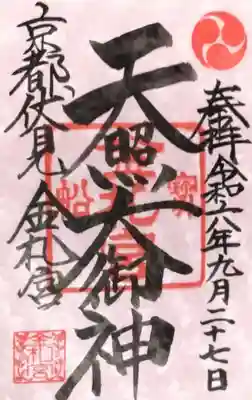 奉拝 令和六年九月二十七日
天照大御神
京都伏見 金札宮